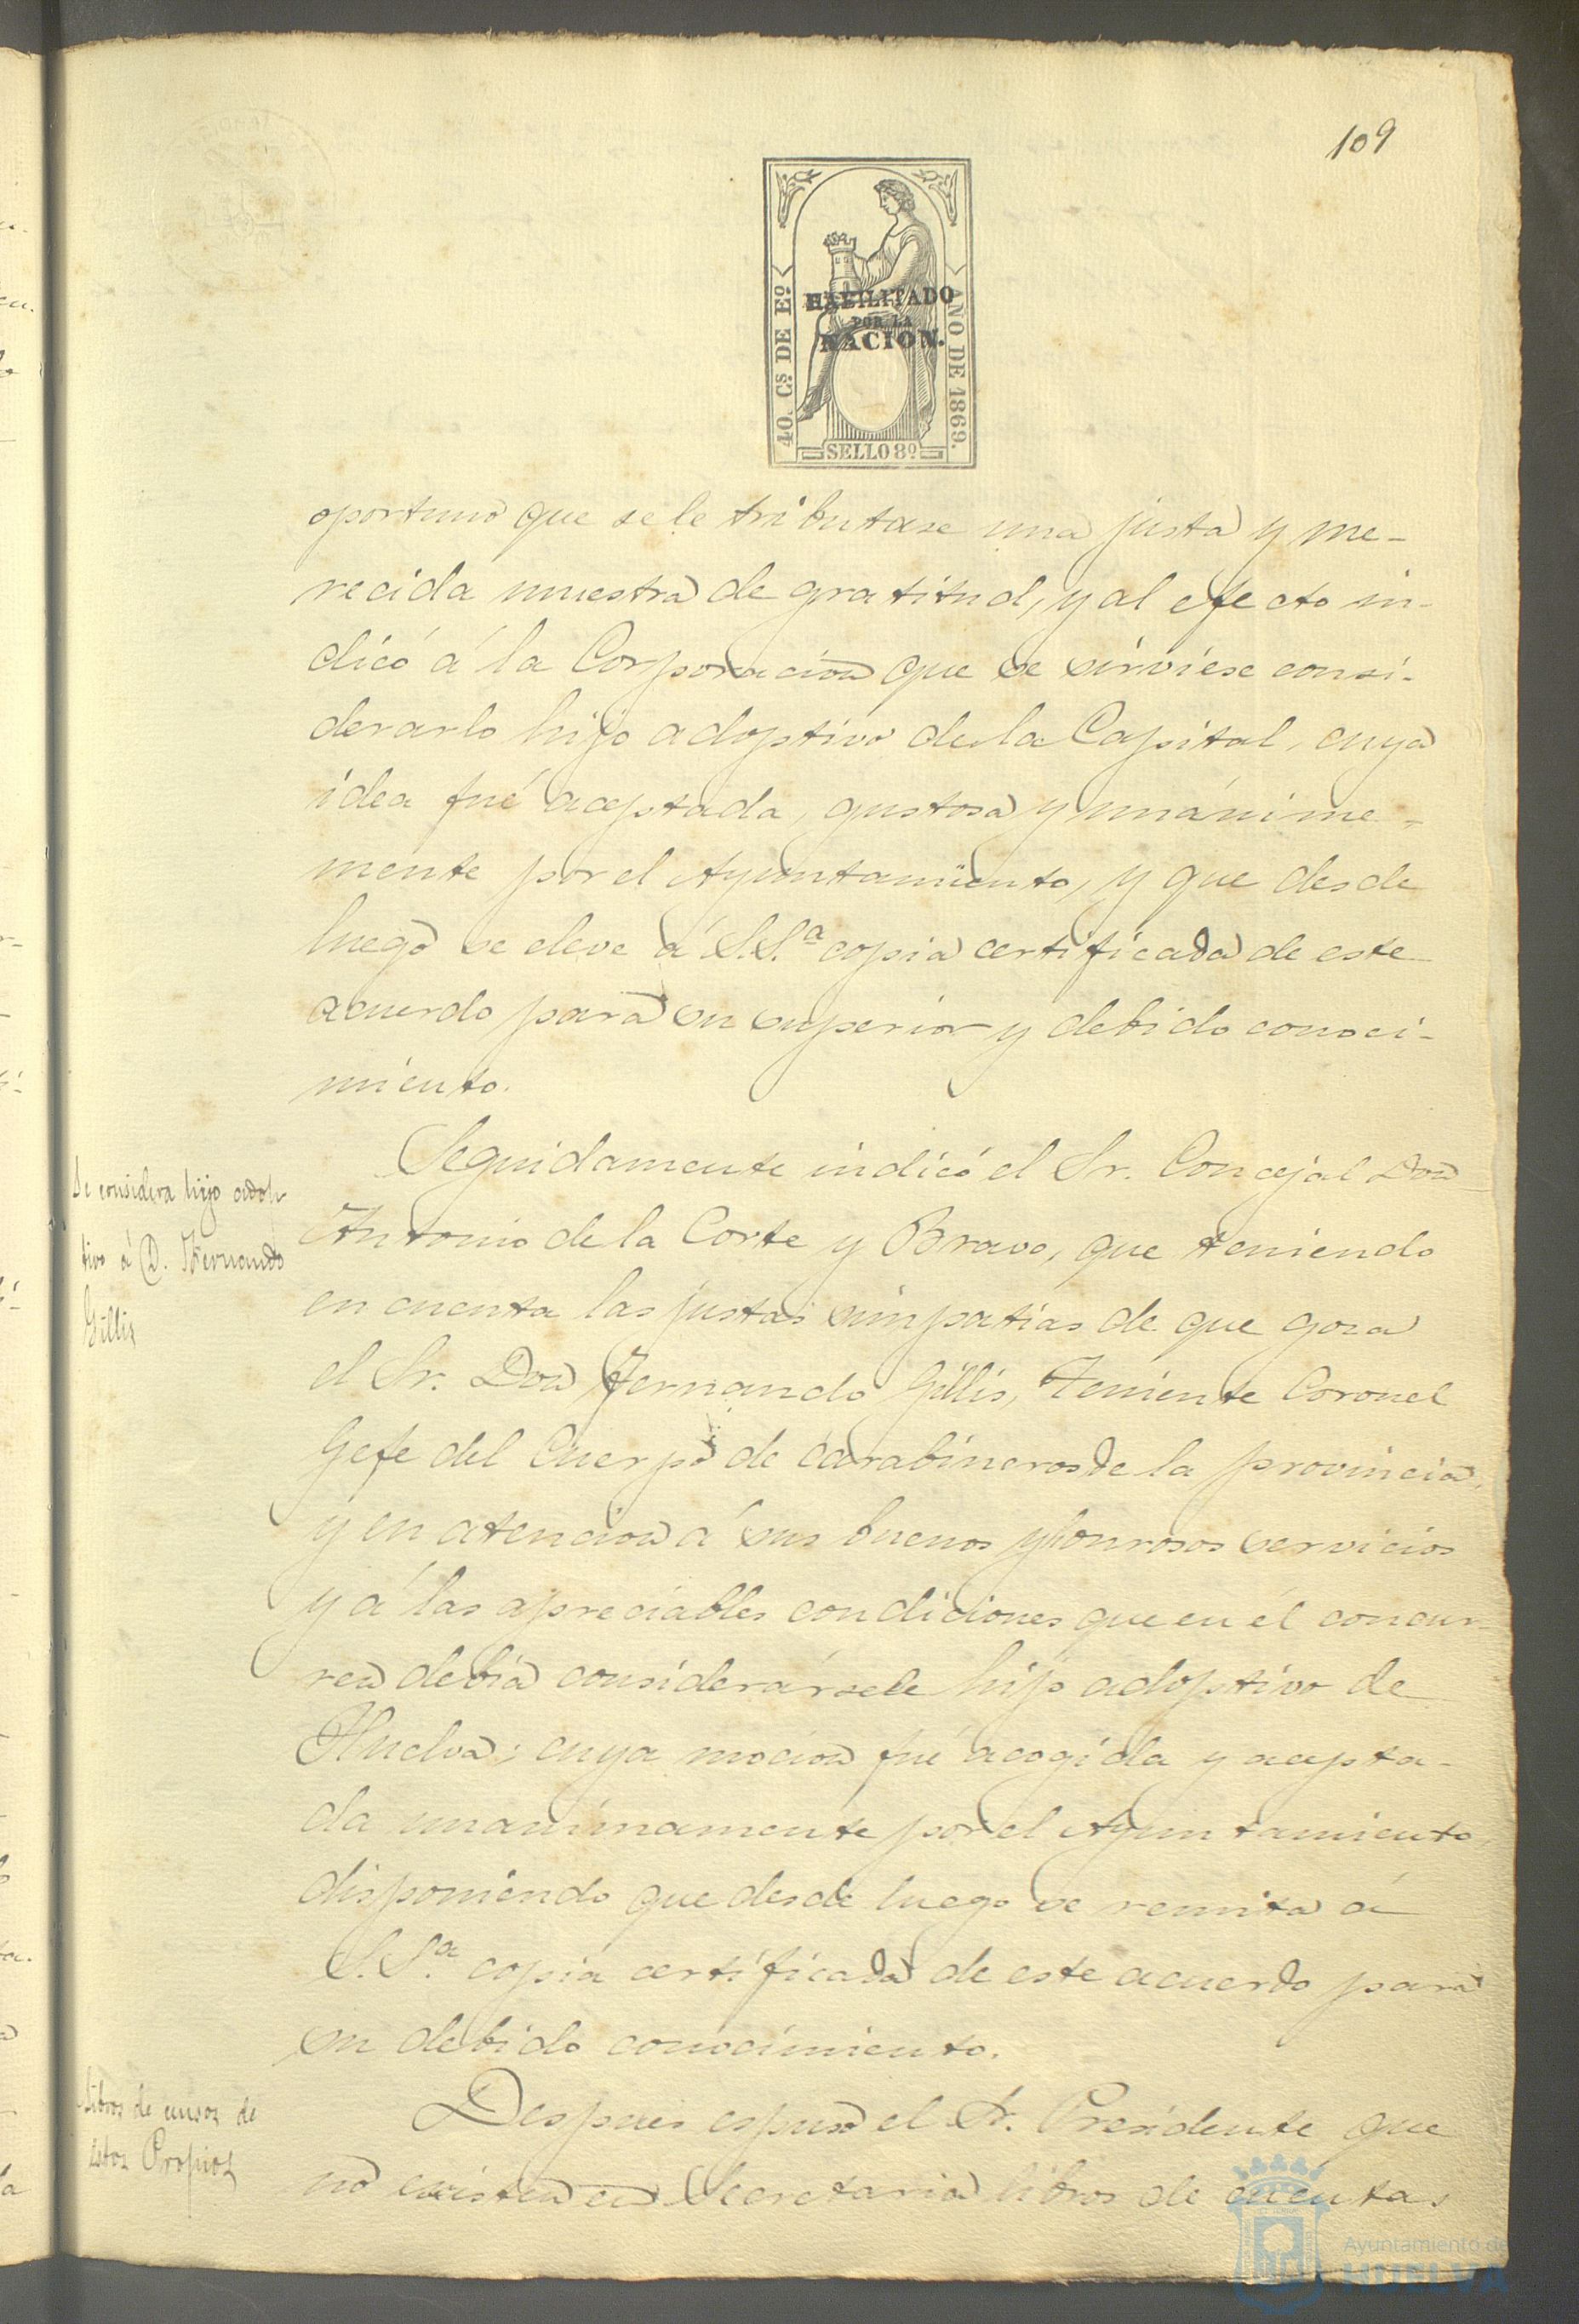 109
40. Cs. DE Eº
HABILITADO
POR LA
NACION.
AÑO DE 1869.
SELLO 8º
oportuno que se le tributase una justa y me-
recida muestra de gratitud, y al efecto in-
dicó á la Corporacion que se sirviese consi-
derarlo hijo adoptivo de la Capital, cuya
idea fué aceptada, gustosa y unánime-
mente por el Ayuntamiento, y que desde
luego se eleve á S.S.ª copia certificada de este
acuerdo para su superior y debido conoci-
miento.
Se considera hijo adop-
tivo á D. Fernando
Gillis
Seguidamente indicó el Sr. Concejal Don
Antonio de la Corte y Bravo, que teniendo
en cuenta las justas simpatías de que goza
el Sr. Don Fernando Gillis, Teniente Coronel
Gefe del Cuerpo de Carabineros de la provincia,
y en atencion á sus buenos y honrosos servicios
y á las apreciables condiciones que en él concur-
ren debia considerársele hijo adoptivo de
Huelva; cuya mocion fué acogida y acepta-
da unanimamente por el Ayuntamiento,
disponiendo que desde luego se remita á
S.S.ª copia certificada de este acuerdo para
su debido conocimiento.
Libros de de
estos Propios
Despues espuso el Sr. Presidente que
no existen en Secretaria libros de cuentas
Ayuntamiento de
HUELVA